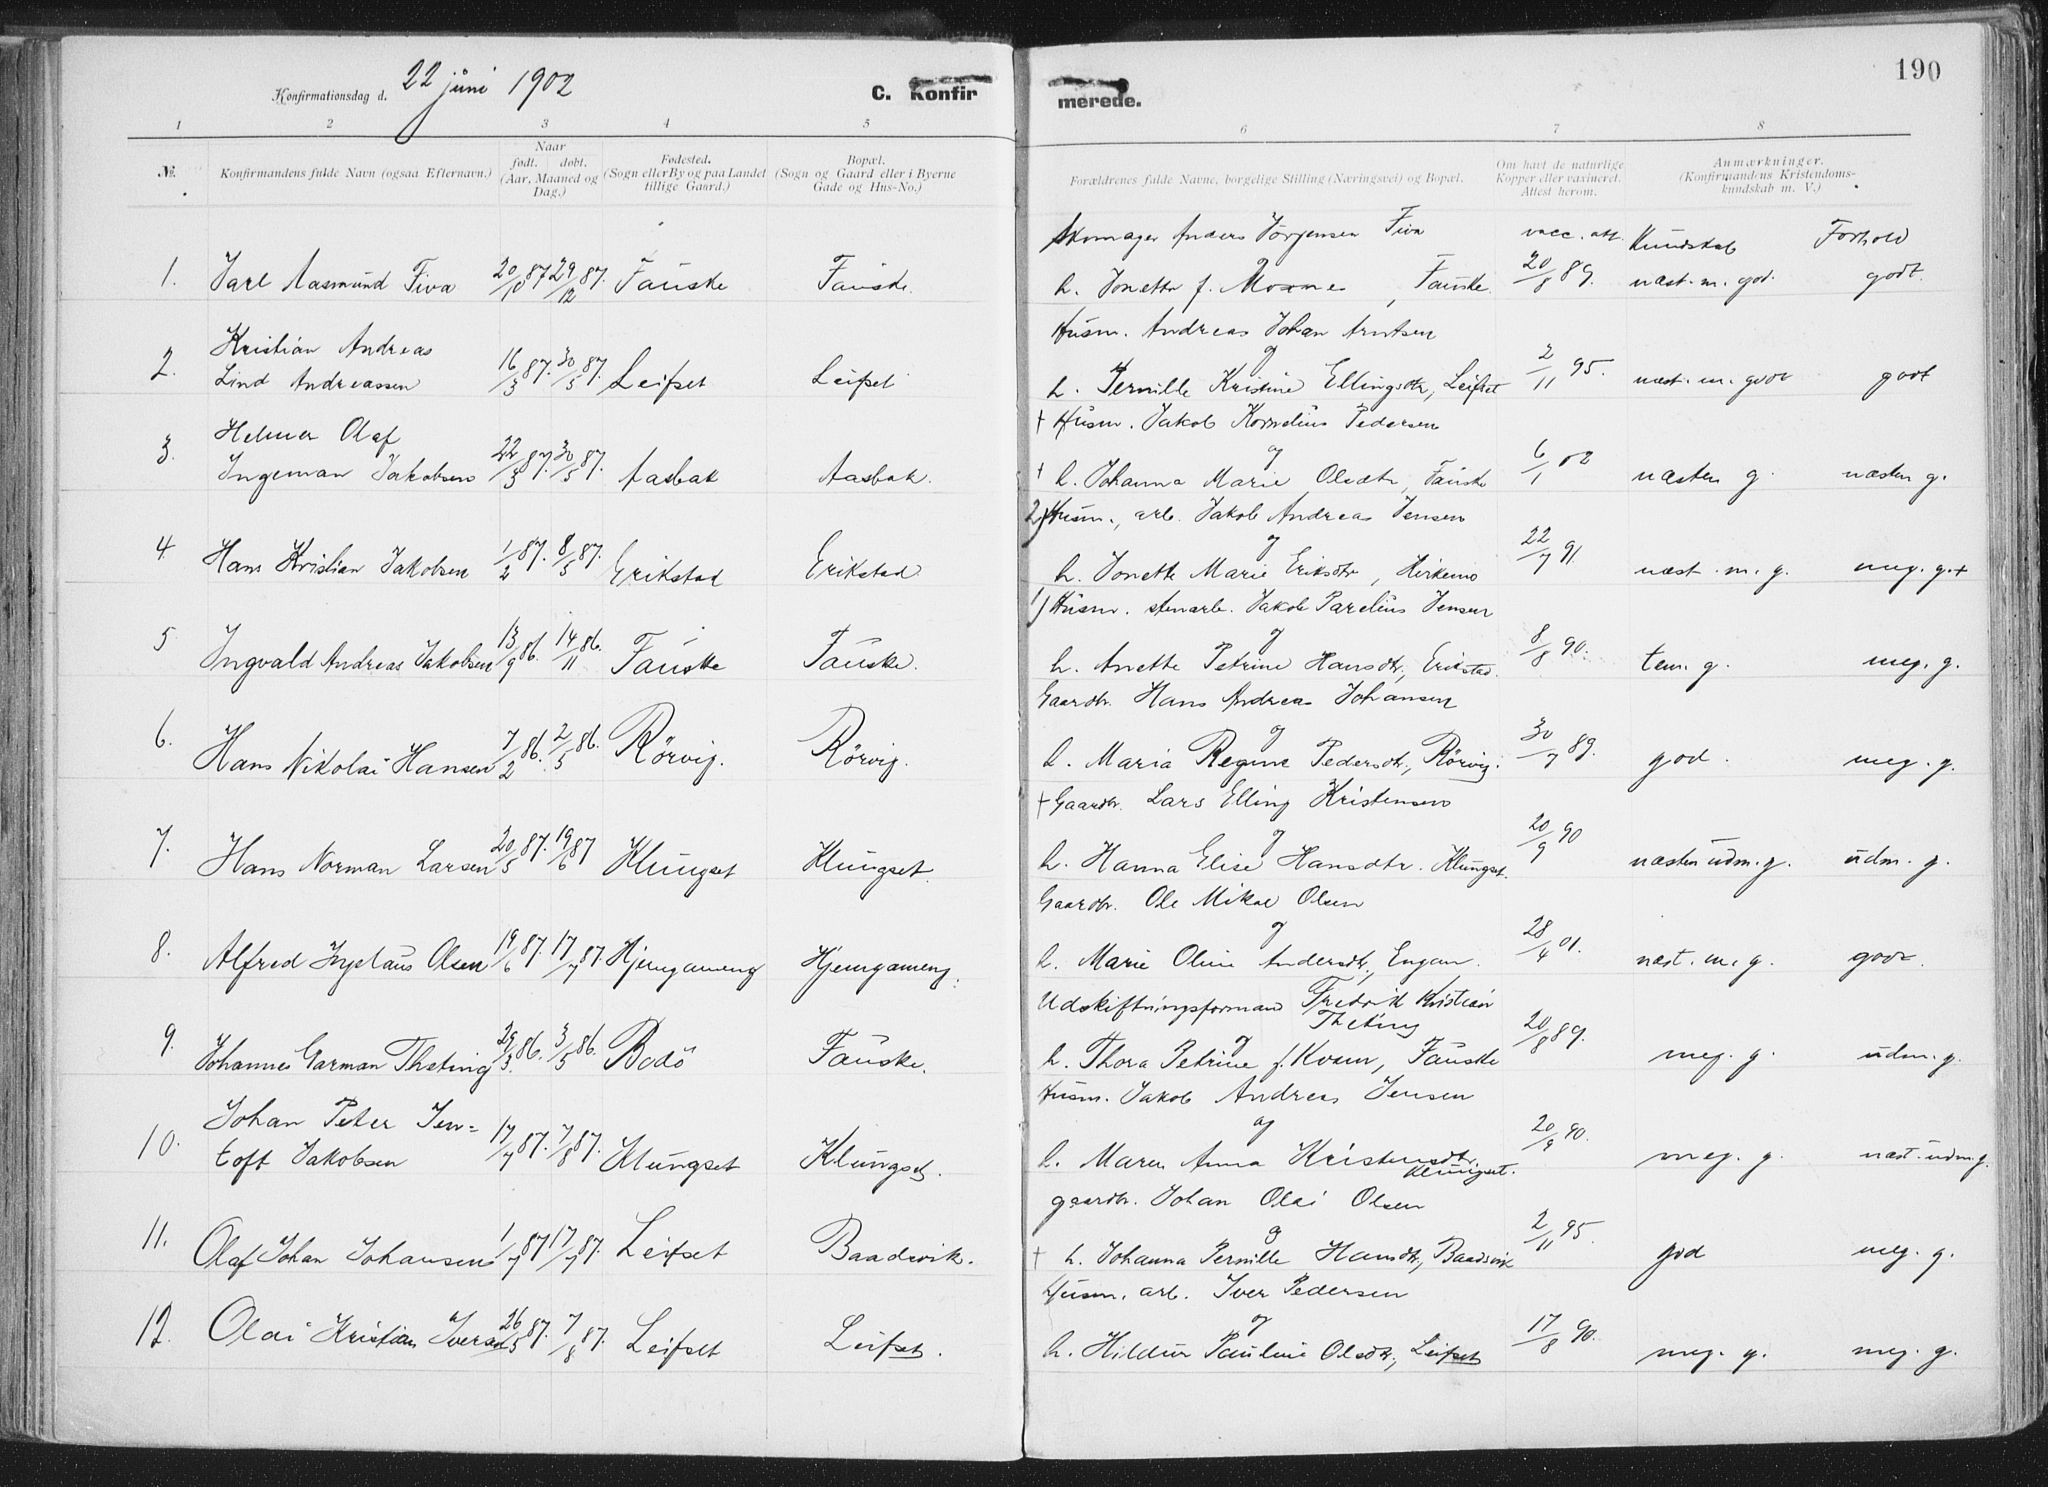 190
Konfirmationsdag d. 22 juni 1902
C. Konfir
merede.
1 2 3 4 5 6 7 8
№.
Konfirmandens fulde Navn (ogsaa Efternavn.)
Naar
født. døbt.
(Aar, Maaned og
Dag.)
Fødested.
(Sogn eller By og paa Landet
tillige Gaard.)
Bopæl.
(Sogn og Gaard eller i Byerne
Gade og Hus-No.)
Forældrenes fulde Navne, borgelige Stilling (Næringsvei) og Bopæl.
Om havt de naturlige
Kopper eller vaxineret.
Attest herom.
Anmærkninger.
(Konfirmandens Kristendoms-
kundskab m. V.)
Skomager Anders Jörgensen Fiva vacc. att. Kundskab Forhold
1. Jarl Aasmund Fiva 20/10 87 29/12 87. Fauske Fauske. h. Jonette f. Mosmes, Fauske. 20/8 89. næst. m. god. godt.
Husm. Andreas Johan Arntsen
Kristian Andreas og
2. Lind Andreassen 16/3 87. 30/5 87. Leifset Leifset h. Pernille Kristine Ellingsdtr, Leifset 2/11 95. næst. m. god godt
+ Husm. Jakob Kornelius Pedersen
Helmer Olaf og
3. Ingeman Jakobsen 22/3 87. 30/5 87. Aasbak Aasbak. + h. Johanna Marie Olsdtr, Fauske 6/1 02 næsten g. næsten g.
2) Husm., arb. Jakob Andreas Jensen
og
4. Hans Kristian Jakobsen 1/2 87. 8/5 87. Erikstad Erikstad h. Jonette Marie Eriksdtr, Kirkemo 22/7 91. næst. m. g. meg. g.+
1) Husm. stenarb. Jakob Parelius Jensen
og
5 Ingvald Andreas Jakobsen 13/9 86. 14/11 86. Fauske Fauske. h. Anette Petrine Hansdtr., Erikstad. 8/8 90. tem. g. meg. g.
Gaardbr. Hans Andreas Johansen
og
6. Hans Nikolai Hansen 7/2 86. 2/5 86. Rörvig. Rörvig. h. Maria Regine Pedersdtr., Rörvig. 30/7 89. god. meg. g.
+ Gaardbr. Lars Elling Kristensen
og
7. Hans Norman Larsen 20/5 87. 19/6 87 Klungset Klungset. h. Hanna Elise Hansdtr. Klungset. 20/9 90 næsten udm. g. udm. g.
Gaardbr. Ole Mikal Olsen
og
8. Alfred Olsen 19/6 87. 17/7 87. Hjemgameng Hjemgameng. h. Marie Oline Andersdtr., Engan. 28/4 01. næst. m. g. godt.
Udskiftningsformand Fredrik Kristian
Theting
og
9. Johannes Garman Theting 29/3 86. 3/5 86. Bodö Fauske. h. Thora Petrine f. Kvam, Fauske 20/8 89. meg. g. udm. g.
Husm. Jakob Andreas Jensen
Johan Peter Jen= og
10. toft Jakobsen 17/7 87. 7/8 87. Klungset Klungset. h. Maren Anna Kristensdtr. 20/9 90. meg. g. næst. udm. g.
Klungset.
gaardbr. Johan Olai Olsen
og
11. Olaf Johan Johansen 1/7 87 17/7 87. Leifset Baadsvik. + h. Johanna Pernille Hansdtr., Baadsvik 2/11 95. god meg. g.
Husm. arb. Iver Pedersen
og
12. Olai Kristian Iversen 26/5 87. 7/8 87. Leifset Leifset. h. Hildur Pauline Olsdtr., Leifset 17/8 90. meg. g. meg. g.